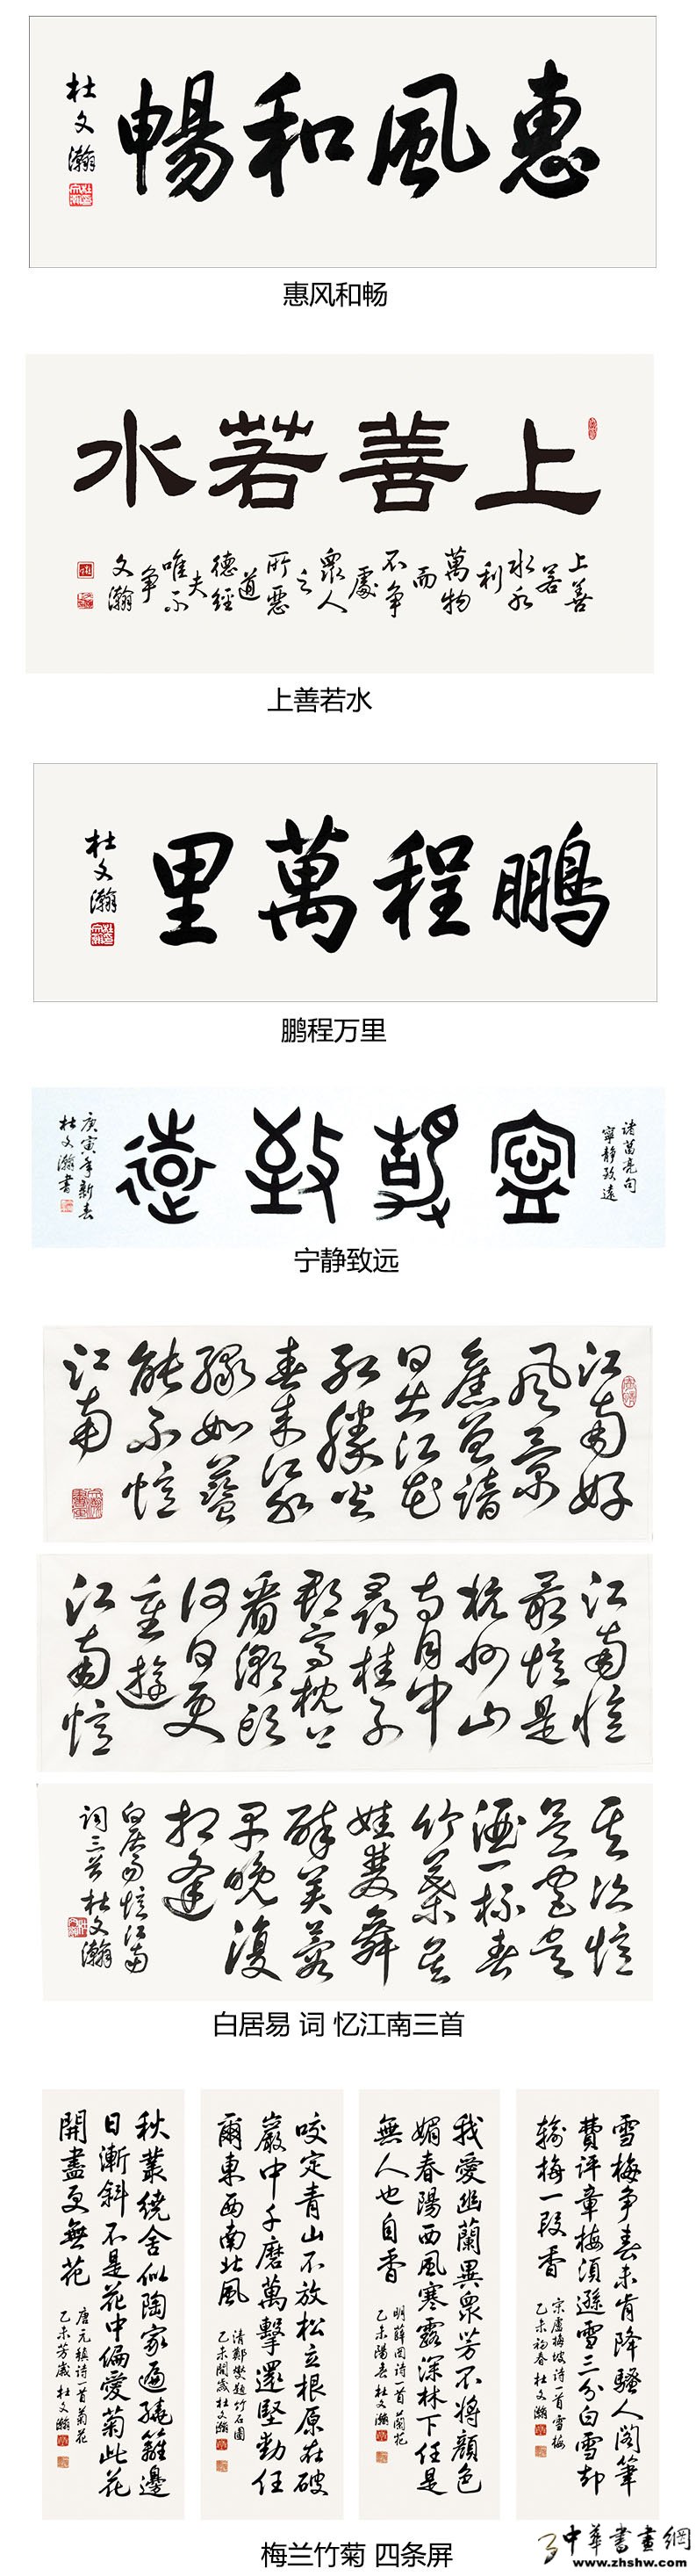 惠風和暢
杜文瀚
惠风和畅
上善若水
上善
若
水水
利
萬物
而
不争
處
衆人
之
所惡
道
德經
夫
唯不
争
文瀚
上善若水
鵬程萬里
杜文瀚
鹏程万里
诸葛亮句
寧静致遠
寧静致遠
庚寅年新春
杜文瀚書
宁静致远
江南好
風景
舊曾諳
日出江花
紅勝火
春来江水
緑如藍
能不憶
江南
江南憶
最憶是
杭州山
寺月中
尋桂子
郡亭枕上
看潮頭
何日更
重遊
江南憶
其次憶
吴宫吴
酒一杯春
竹葉吴
娃雙舞
醉芙蓉
早晚復
相逢
白居易憶江南
词三首 杜文瀚
白居易 词 忆江南三首
雪梅争春未肯降騷人閣筆
費評章梅須遜雪三分白雪却
輸梅一段香
宋盧梅坡诗一首雪梅
乙未初春 杜文瀚
我愛幽蘭異衆芳不將顔色
媚春陽西風寒露深林下任是
無人也自香
明薛网诗一首蘭花
乙未陽春杜文瀚
咬定青山不放松立根原在破
巖中千磨萬擊還堅勁任
爾東西南北風
清鄭燮题竹石圖
乙未開歲杜文瀚
秋叢繞舍似陶家遍繞籬邊
日漸斜不是花中偏愛菊此花
開盡更無花
唐元稹诗一首菊花
乙未芳歲 杜文瀚
梅兰竹菊 四条屏
中華書畫網
www.zhshw.com